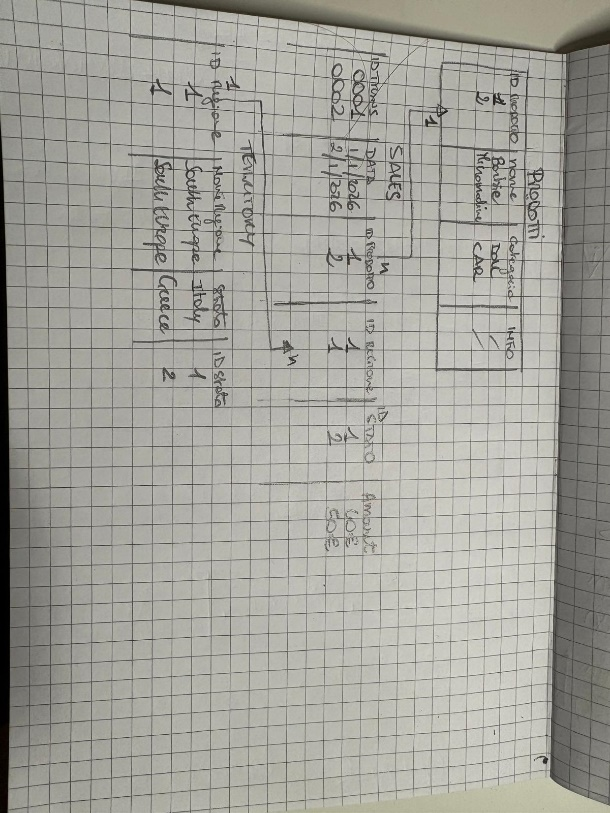 Prodotti
ID Prodotto nome Categoria INFO
1 Barbie DOLL /
2 CAR /
1
SALES n
ID Trans DATA ID Prodotto ID Regione ID STATO Amount
0001 1/1/2026 1 1 1
0002 2/1/2026 2 1 2
TERRITORY n
1
ID Regione Nome Regione Stato ID Stato
1 South Europe Italy 1
1 South Europe Greece 2